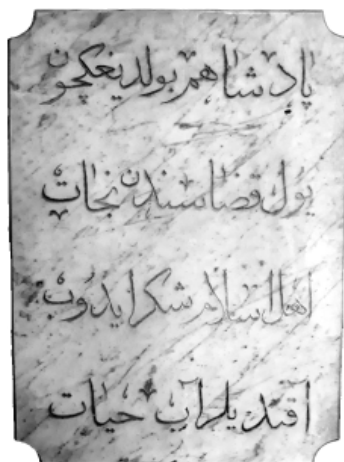 پادشاهم بولديغكچون
يول قضاسندن نجات
اهل اسلام شكر ايدوب
آقتديلر آب حيات